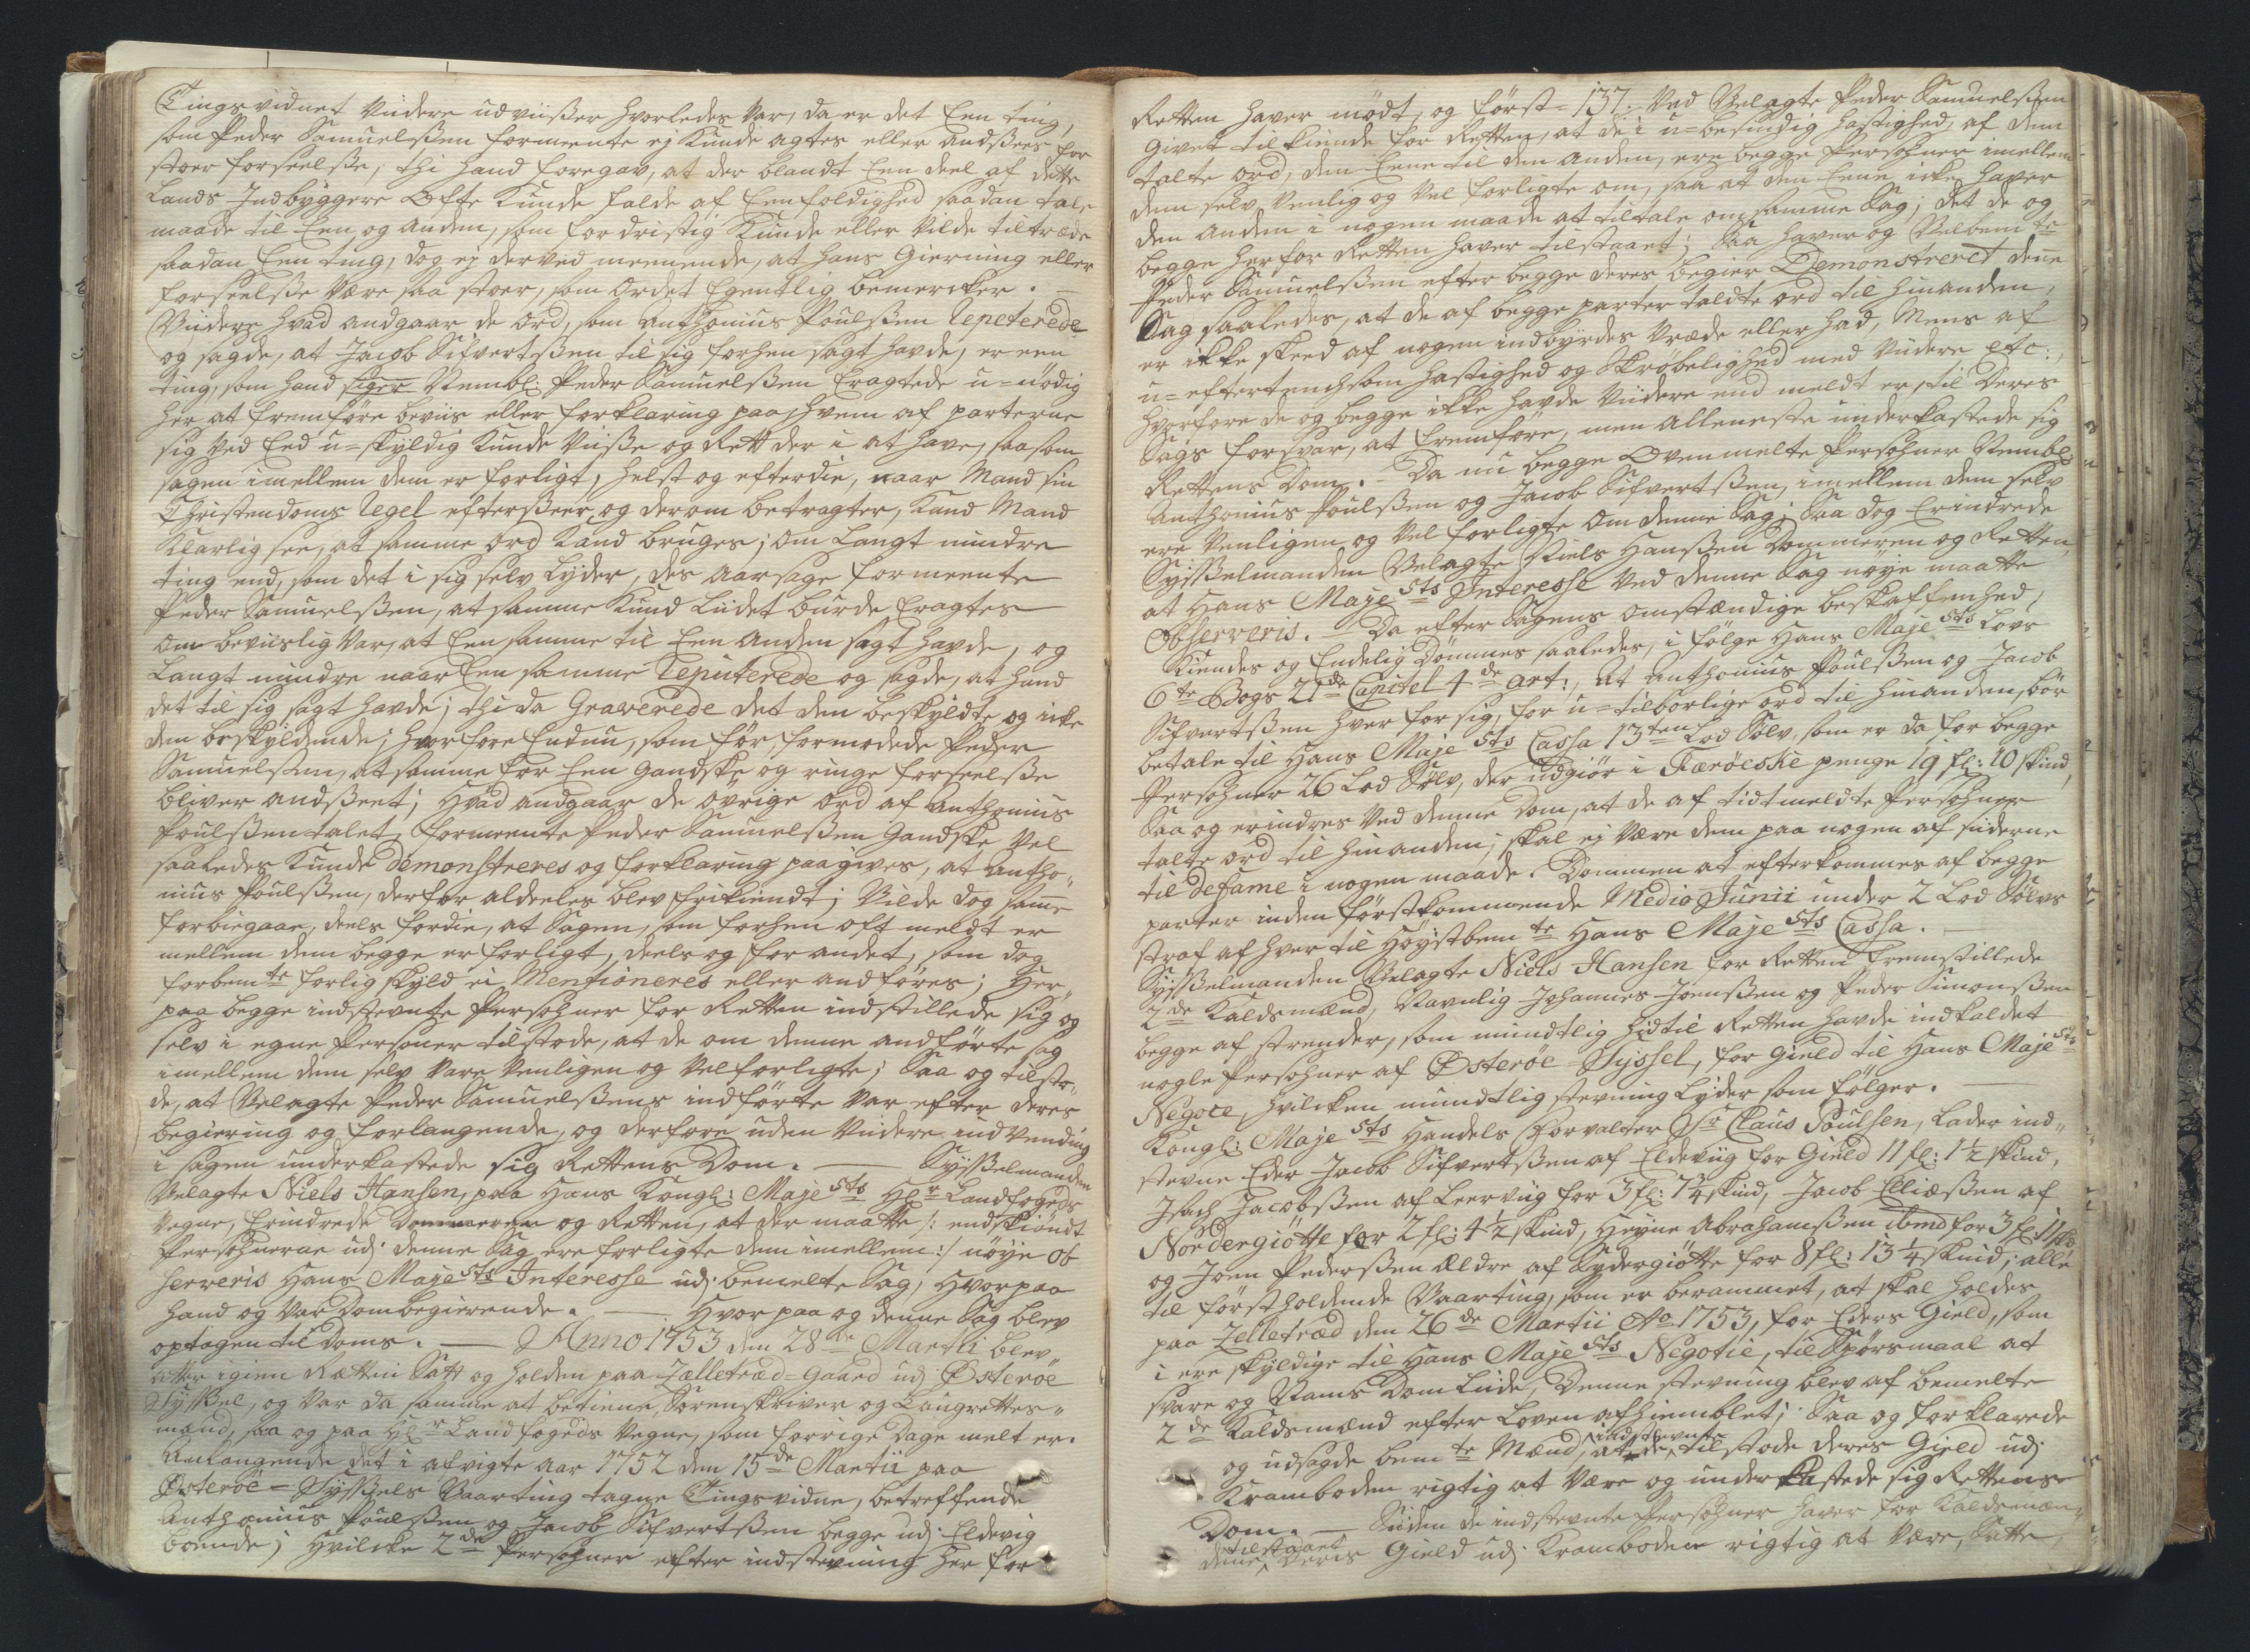 Tingsvidnet Viidere udviißer hvorledes Var, da er det Een ting,
som Peder Samuelßen formeente ej Kunde agtes eller andßees for
stoer forseelße, thi hand foregav, at der blandt Een deel af dette
Lands Indbyggere Ofte Kunde falde af Eenfoldighed saadan tale
maade til Een og anden, som fordristig Kunde eller Vilde tiltræde
saadan Een ting, dog ej derved meenende, at hans Gierning eller
forseelße Være saa stoer, som Ordet Egentlig bemercker. —
Viidere hvad andgaar de Ord, som Anthonius Poulßen Repeterede
og sagde, at Jacob Sifvertßen til sig forhen sagt havde, er een
ting, som hand siger Nembl: Peder Samuelßen Eragtede u=nödig
her at fremföre beviis eller forklaring paa, hvem af parterne
sig ved Eed u=skyldig Kunde Viiße og Rett der i at have, saasom
sagen imellem dem er forligt, helst og efterdie, naar Mand sin
Christendoms Regel efterßeer, og derom betragter, Kand Mand
Klarlig see, at samme Ord Kand bruges; om Langt mindre
ting end, som det i sig selv Lyder, des Aarsage formeente
Peder Samuelßen, at samme Kund Liidet burde Eragtes
Om beviislig Var, at Een samme til Een Anden sagt havde, og
Langt mindre naar Een samme Reputerede og sagde, at hand
det til sig sagt havde; thi da Graverede det den beskyldte og icke
den beskyldende; hvorfore Endnu, som för, formodede Peder
Samuelßen, at samme for Een gandske og ringe forseelße
bliver andßeet; Hvad andgaar de övrige Ord af Anthonius
Poulßen talet, formeente Peder Samuelßen Gandske Vel
saaledes Kunde demonstreres og forklaring paagives, at Antho„
nius Poulßen, derfor aldeeles blev frikiendt; Vilde dog same
forbiegaae, deels fordie, at Sagen, som forhen oft meldt er
mellem dem begge er forligt, deels og for andet, som dog
forbemte forlig skyld ei Mentioneres eller andföres; Her„
paa begge indstevnte Persohner for Retten indstillede sig og
selv i egne Personer tilstode, at de om denne andförte sag
imellem dem selv Vare Venligen og Vel forligte; Saa og tilsto„
de, at Velagte Peder Samuelßens indförte Var efter deres
begiering og forlangende, og derfore uden Viidere indVending
i sagen underkastede sig Rettens Dom. — Sysßelmanden
Velagte Niels Hansen, paa Hans Kongl: Majests Hr Landfogeds
Vegne, Erindrede Dommeren og Retten, at der maatte /: endskiöndt
Persohnerne udj denne Sag ere forligte dem imellem :/ nöye Ob
serveris Hans Majests Interesse udj bemelte Sag, Hvorpaa
Hand og Var Dom begierende. — Hvor paa og denne Sag blev
optagen til Doms. — Anno 1753 den 28de Martii blev
atter igien Rætten Satt og holden paa Zelletræd=Gaard udj Österöe
Sysßel, og Var da samme at betiene, Sorenskriver og Laugrettes„
mænd, saa og paa Hr Landfogeds Vegne, som forrige Dage melt er.
Anlangende det i afvigte Aar 1752 den 15de Martii paa
Österöe=Sysßels Vaarting tagne Tingsvidne, betreffende
Anthonius Poulßen og Jacob Sifvertßen begge udj Eldevig
boende; Hvilcke 2de Persohner efter indstevning her for
Retten haver mödt, og först= 137. Ved Velagte Peder Samuelßen
givet tilkiende for Retten, at de i u=besindig hastighed, af dem
talte Ord, den Eene til den anden, ere begge Persohner imellem
dem selv Venlig og Vel forligte om, saa at den Eene icke haver
den anden i nogen maade at tiltale om samme Sag; det de og
begge her for Retten haver tilstaaet; Saa haver og Velbemte
Peder Samuelßen efter begge deres begier Demonstreret dene
Sag saaledes, at de af begge parter taldte ord til hinanden,
er ikke skeed af nogen indbyrdes Vrede eller had, Mens af
u=eftertenchsom hastighed og Skröbelighed med Viidere etc:,
hvorfore de og begge ikke havde Viidere end meldt er, til Deres
Sags forsvar, at fremföre, men alleneste underkastede sig
Rettens Dom. — Da nu begge Ovenmelte Persohner Nembl:
Anthonius Poulßen og Jacob Sifvertßen, imellem dem selv
ere Venligen og Vel forligte om denne Sag; Saa dog Erindrede
Sysßelmanden Velagte Niels Hanßen Dommeren og Retten,
at Hans Majests Interesse Ved denne Sag nöye maatte
Observeris. — Da efter Sagens Omstændige beskaffenhed,
Kiendes og Endelig Dömmes saaledes, i fölge Hans Majests Lovs
6te Bogs 21de Capitel 4de Art:, At Anthonius Poulßen og Jacob
Sifvertßen hver for sig, for u=tilborlige ord til hinanden, bör
betale til Hans Majests Cassa 13ten Lod Sölv, som er da for begge
Persohner 26 Lod Sölv, der udgiör i Færöeske penge 19 fl: 10 skind,
Saa og erindres Ved denne Dom, at de af tidtmeldte Persohner
talte ord til hinanden, skal ej være dem paa nogen af siiderne
til defame i nogen maade. Dommen at efterkommes af begge
parter inden förstkommende Medio Junii under 2 Lod Sölvs
straf af hver til Höystbemte Hans Majests Cassa. —
Sysßelmanden Velagte Niels Hansen for Retten fremstillede
2de Kaldsmænd, Navnlig Johannes Joenßen og Peder Simonßen
begge af Strender, som mundtlig hidtil Retten havde indkaldet
nogle Persohner af Österöe Syssel, for gield til Hans Majests
Negoce, hvilcken mundtlig stevning Lyder som fölger. —
Kongl: Majests Handels Forvalter Sr Claus Poulsen, lader ind„
stevne Eder Jacob Sifvertßen af Eldeviig for Gield 11 fl: 1½ skind,
Isach Jacobßen af Leerviig for 3 fl: 7¾ skind, Jacob Elliæßen af
Nordergiötte for 2 fl: 4½ skind, Heyne Abrahamßen ibmd for 3 fl 11 sk
og Joen Pederßen Ældre af Sydergiötte for 8 fl: 13¼ skind; alle
til förstholdende Vaarting, som er berammet, at skal holdes
paa Zelletræd den 26de Martii Ao 1753, for Eders Gield, som
i ere skyldige til Hans Majests Negotie, til Spörsmaal at
svare og Nams Dom Liide, Denne stevning blev af bemelte
2de Kaldsmænd efter Loven afhiemblet; Saa og forklarede
og udsagde bemte Mænd, at de indstevnte tilstode deres Gield udj
Kramboden rigtig at være og underkastede sig Rettens
Dom. — Siiden de indstevnte Persohner haver for Kaldsmæn„
dene tilstaaet deris Gield udj Kramboden rigtig at være, Sätte